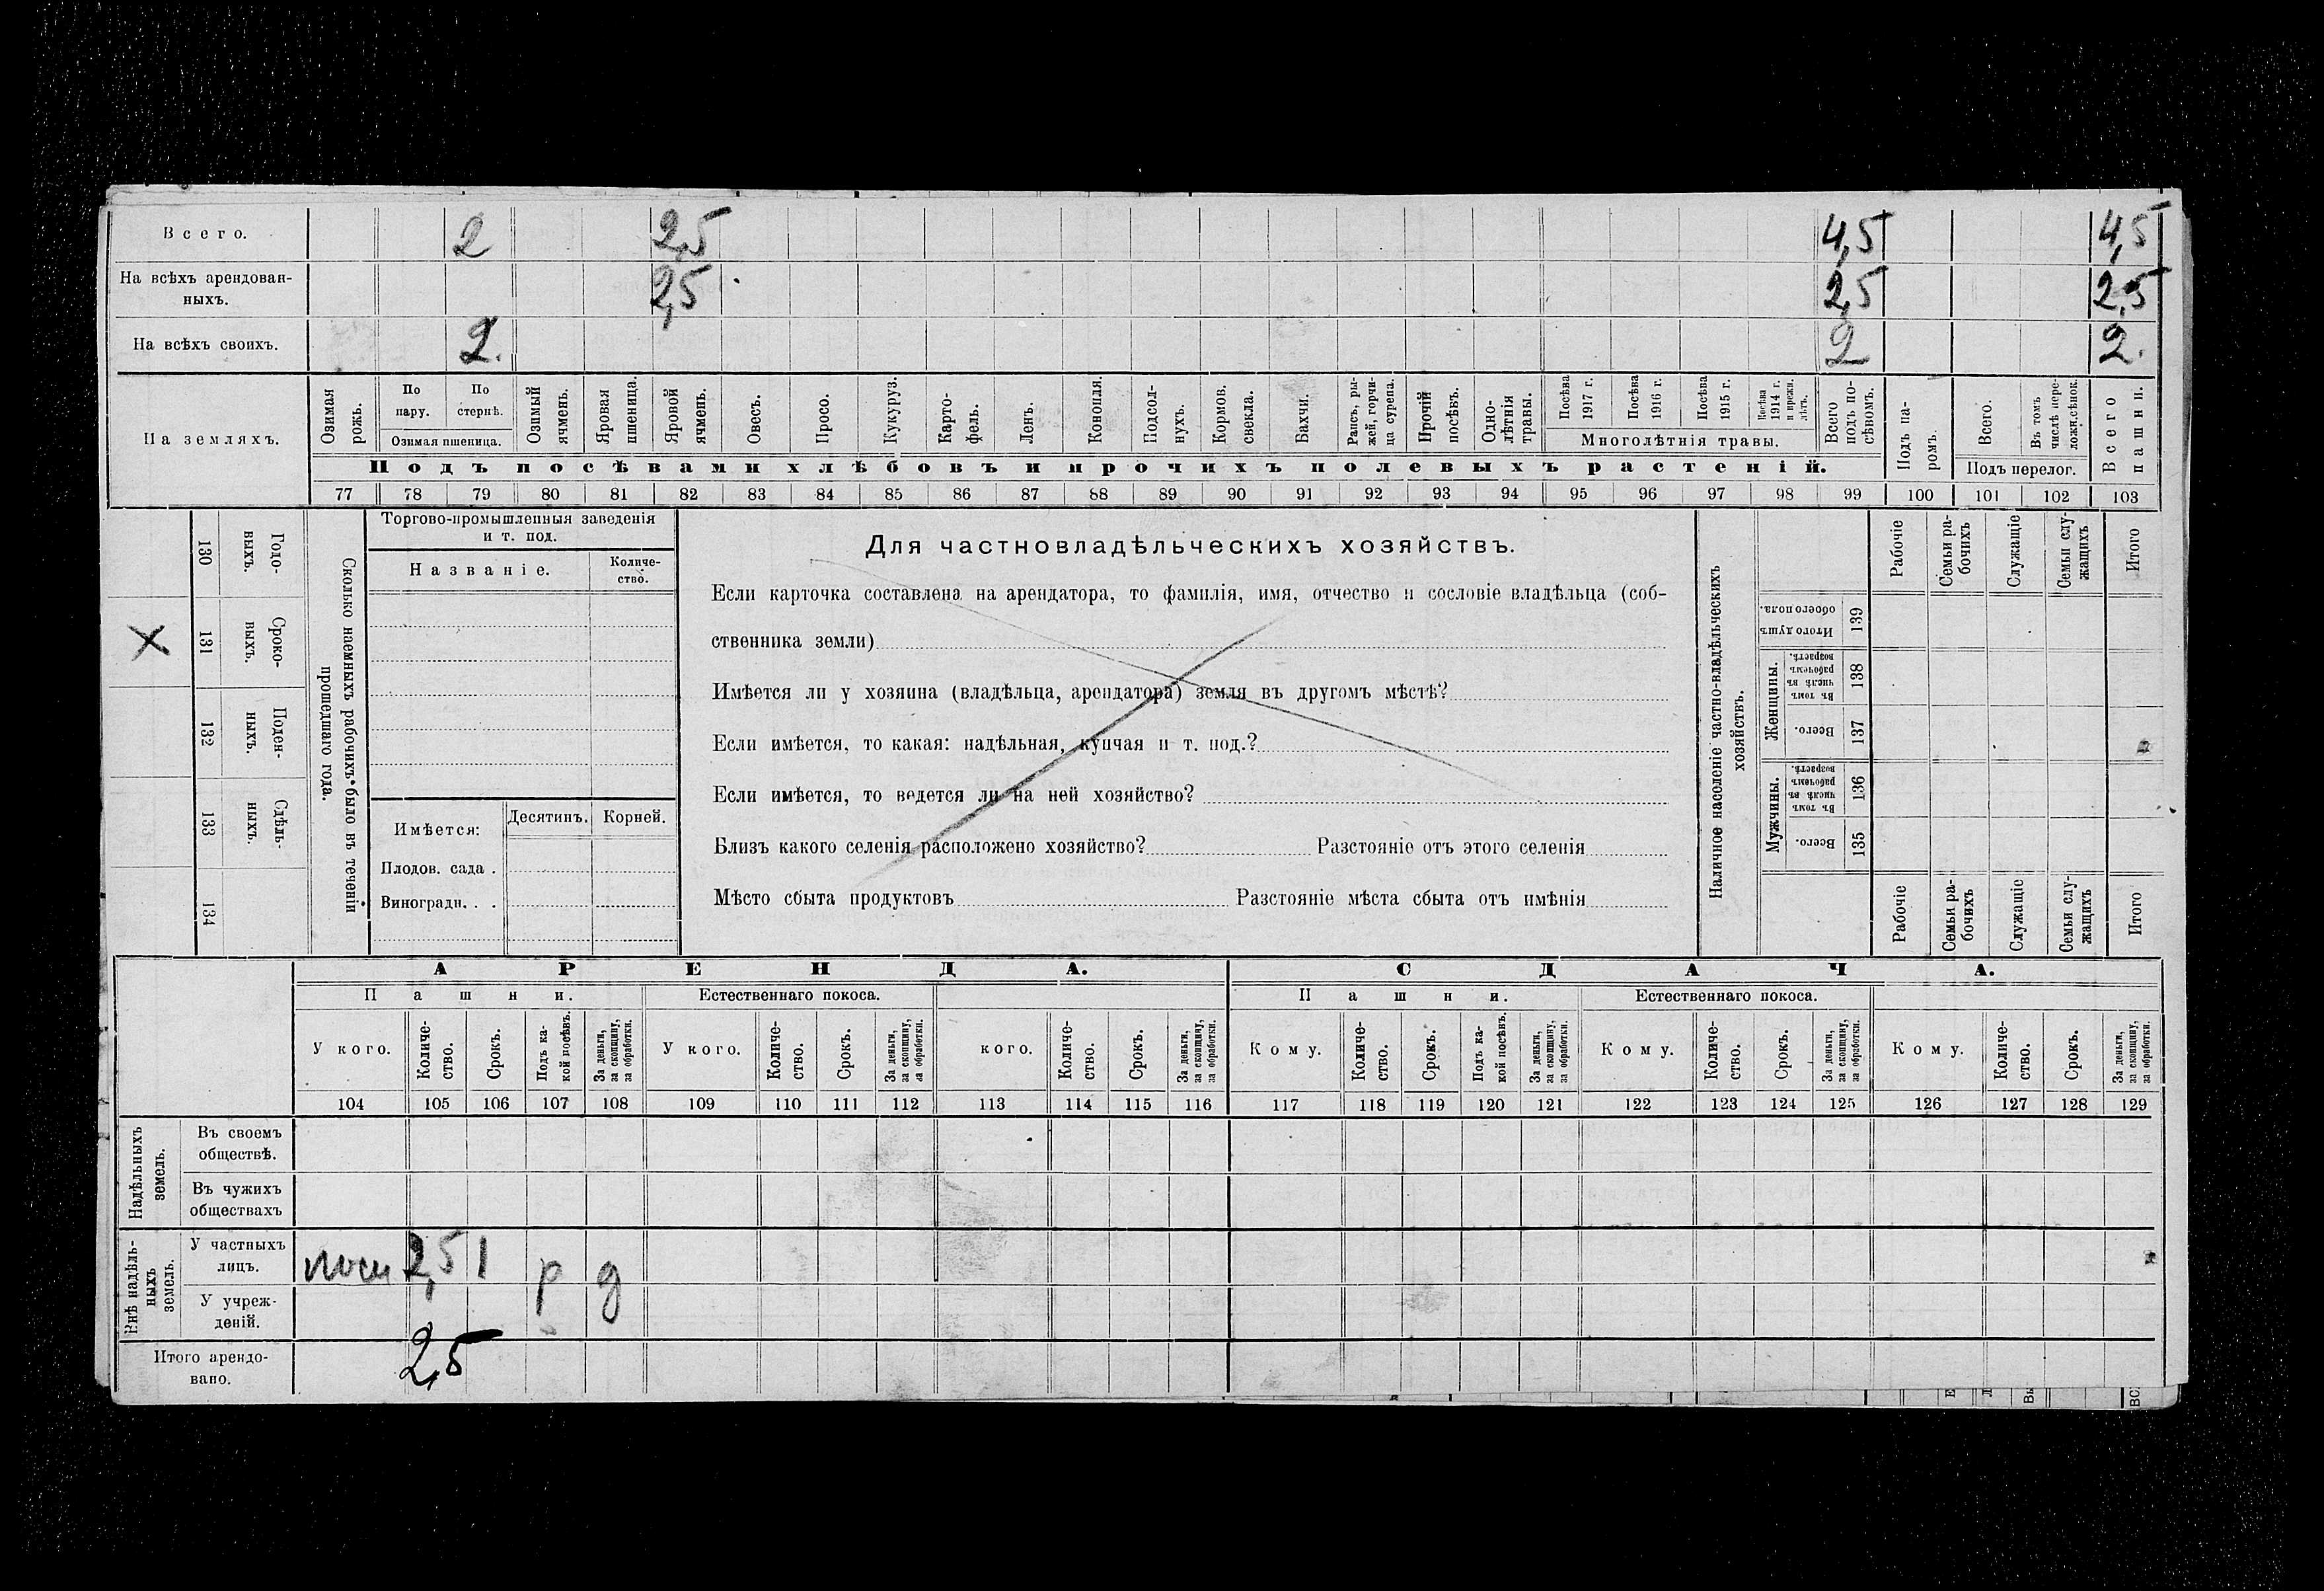 Всего. 2 2,5 4,5 4,5
На всѣхъ арендован-
ныхъ. 2,5 2,5 2,5
На всѣхъ своихъ. 2. 2 2.
На земляхъ.
Озимая рожь.
По пару.
По стернѣ.
Озимая пшеница.
Озимый ячмень.
Яровая пшеница.
Яровой ячмень.
Овесъ.
Просо.
Кукуруз.
Карто-
фель.
Ленъ.
Конопля.
Подсол-
нухъ.
Кормов.
свекла.
Бахчи.
Рапсъ, ры-
жей, горчи-
ца сурепа.
Прочій
посѣвъ.
Одно-
лѣтнія
травы.
Посѣва
1917 г.
Посѣва
1916 г.
Посѣва
1915 г.
Посѣва
1914 г.
и прежн.
лѣтъ.
Многолѣтнія травы.
Всего
подъ по-
сѣвомъ.
Подъ па-
ромъ.
Всего.
Въ томъ
числѣ пере-
ложн.сѣнок.
Подъ перелог.
Всего
пашни.
Подъ посѣвами хлѣбовъ и прочихъ полевыхъ растеній.
77 78 79 80 81 82 83 84 85 86 87 88 89 90 91 92 93 94 95 96 97 98 99 100 101 102 103
130 Годо-
выхъ.
131 Сроко-
выхъ.
132 Поден-
ныхъ.
133 Сдѣль-
ныхъ.
134
Сколько наемныхъ рабочихъ было въ теченіи
прошедшаго года.
Торгово-промышленныя заведенія
и т. под.
Названіе.
Количе-
ство.
Имѣется:
Десятинъ. Корней.
Плодов. сада .
Виноградн. . .
Для частновладѣльческихъ хозяйствъ.
Если карточка составлена на арендатора, то фамилія, имя, отчество и сословіе владѣльца (соб-
ственника земли)
Имѣется ли у хозяина (владѣльца, арендатора) земля въ другомъ мѣстѣ?
Если имѣется, то какая: надѣльная, купчая и т. под.?
Если имѣется, то ведется ли на ней хозяйство?
Близъ какого селенія расположено хозяйство? Разстояніе отъ этого селенія
Мѣсто сбыта продуктовъ Разстояніе мѣста сбыта отъ имѣнія
Наличное населеніе частно-владѣльческихъ
хозяйствъ.
Рабочіе
Семьи ра-
бочихъ
Служащіе
Семьи слу-
жащихъ
Итого
Итого душъ
обоего пола.
139
Женщины.
Въ томъ
числѣ въ
рабочемъ
возрастѣ.
138
Всего.
137
Мужчины.
Въ томъ
числѣ въ
рабочемъ
возрастѣ.
136
Всего.
135
Рабочіе
Семьи ра-
бочихъ
Служащіе
Семьи слу-
жащихъ
Итого
АРЕНДА. СДАЧА.
Пашни. Естественнаго покоса. Пашни. Естественнаго покоса.
У кого.
Количе-
ство.
Срокъ.
Подъ ка-
кой посѣвъ.
За деньги,
за скопщину,
за обработки.
У кого.
Количе-
ство.
Срокъ.
За деньги,
за скопщину,
за обработки.
кого.
Количе-
ство.
Срокъ.
За деньги,
за скопщину,
за обработки.
Кому.
Количе-
ство.
Срокъ.
Подъ ка-
кой посѣвъ.
За деньги,
за скопщину,
за обработки.
Кому.
Количе-
ство.
Срокъ.
За деньги,
за скопщину,
за обработки.
Кому.
Количе-
ство.
Срокъ.
За деньги,
за скопщину,
за обработки.
104 105 106 107 108 109 110 111 112 113 114 115 116 117 118 119 120 121 122 123 124 125 126 127 128 129
Надѣльныхъ
земель.
Въ своемъ
обществѣ.
Въ чужихъ
обществахъ
Внѣ надѣль-
ныхъ
земель.
У частныхъ
лицъ. 2,5 1 р д
У учреж-
деній.
Итого арендо-
вано. 2,5